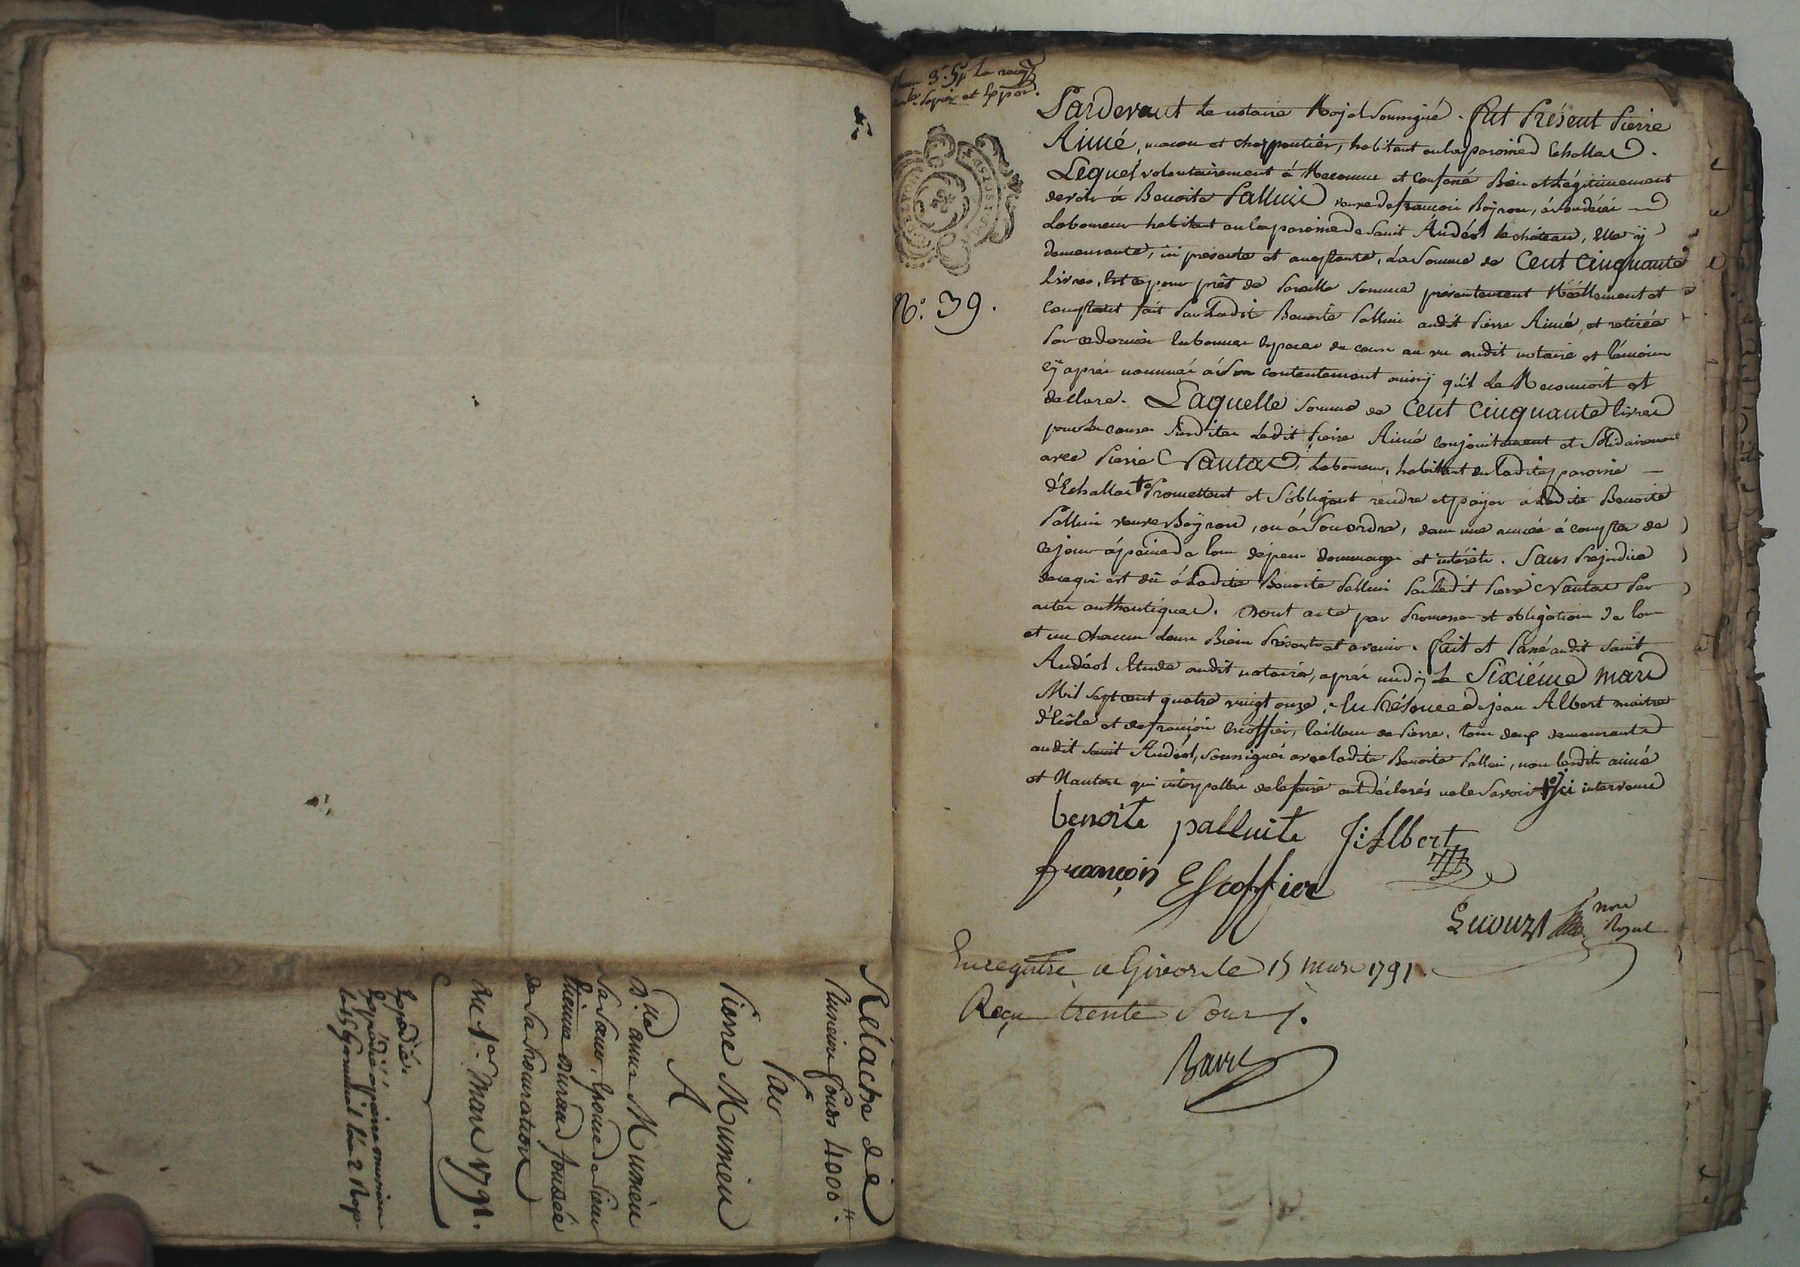 Relache de
Plusieurs fonds 4000 ₶.
Par
Pierre Munieu
A
Dlle anne Munieu
Sa Sœur, Epouse de Sieur
Etienne Durand fondée
de Sa Procuration
Du 1er. Mars 1791.
Expédiée.
Nº. 39.
Pardevant le notaire Royal Soussigné. fut Présent Pierre
Aimé, macon et charpentier, habitant en la paroisse d'Echallas.
Lequel volontairement à Reconnu et confessé Bien et Légitimement
devoir à Benoite Palluit veuve de françois Boÿron, à Son décès
Laboureur habitant en la paroisse de Saint Andéol le château, Elle ÿ
demeurante, ici présente et acceptante, La Somme de Cent Cinquante
Livres, Et ce pour prêt de Pareille Somme présentement Réellement et
comptant fait Par Ladite Benoite Palluit audit Pierre Aimé, et retirée
Par ce dernier En bonnes Espèces de cours au vu dudit notaire et témoins
cÿ après nommés à Son contentement ainsÿ qu'il Le Reconnoit et
declare. Laquelle Somme de Cent Cinquante livres
pour les causes Susdites Ledit Pierre Aimé conjointement et Solidairement
avec Pierre Nantas, Laboureur, habitant en Ladite paroisse
d'Echallas + Promettent et S'obligent rendre et paÿer à Ladite Benoite
Palluit veuve Boÿron, ou à Son ordre, dans une année à compter de
ce jour à peine de tous dépens dommages et intérêts. Sans Préjudice
de ce qui est dû à Ladite Benoite Palluit Par Ledit Pierre Nantas Par
actes authentiques. Dont acte par Promesse et obligation de tous
et un chacun Leurs Biens Présents et avenir. fait et Passé audit Saint
Andéol Etude dudit notaire, après midÿ Le Sixiéme mars
Mil Sept cent quatre vingt onze. En Présence de jean Albert maitre
d'Ecôle et de françois Escoffier, tailleur de Pierre, tous deux demeurants
audit Saint Andéol, Soussignés avec Ladite Benoite Palluit, non Lesdits aimé
et Nantas qui interpellés de le faire ont déclarés ne le Savoir + ici intervenu
benoite palluite J: Albert
françois Escoffier
nre
Royal
Enregistré a Givors le 15 mars 1791.
Reçu trente Sous.